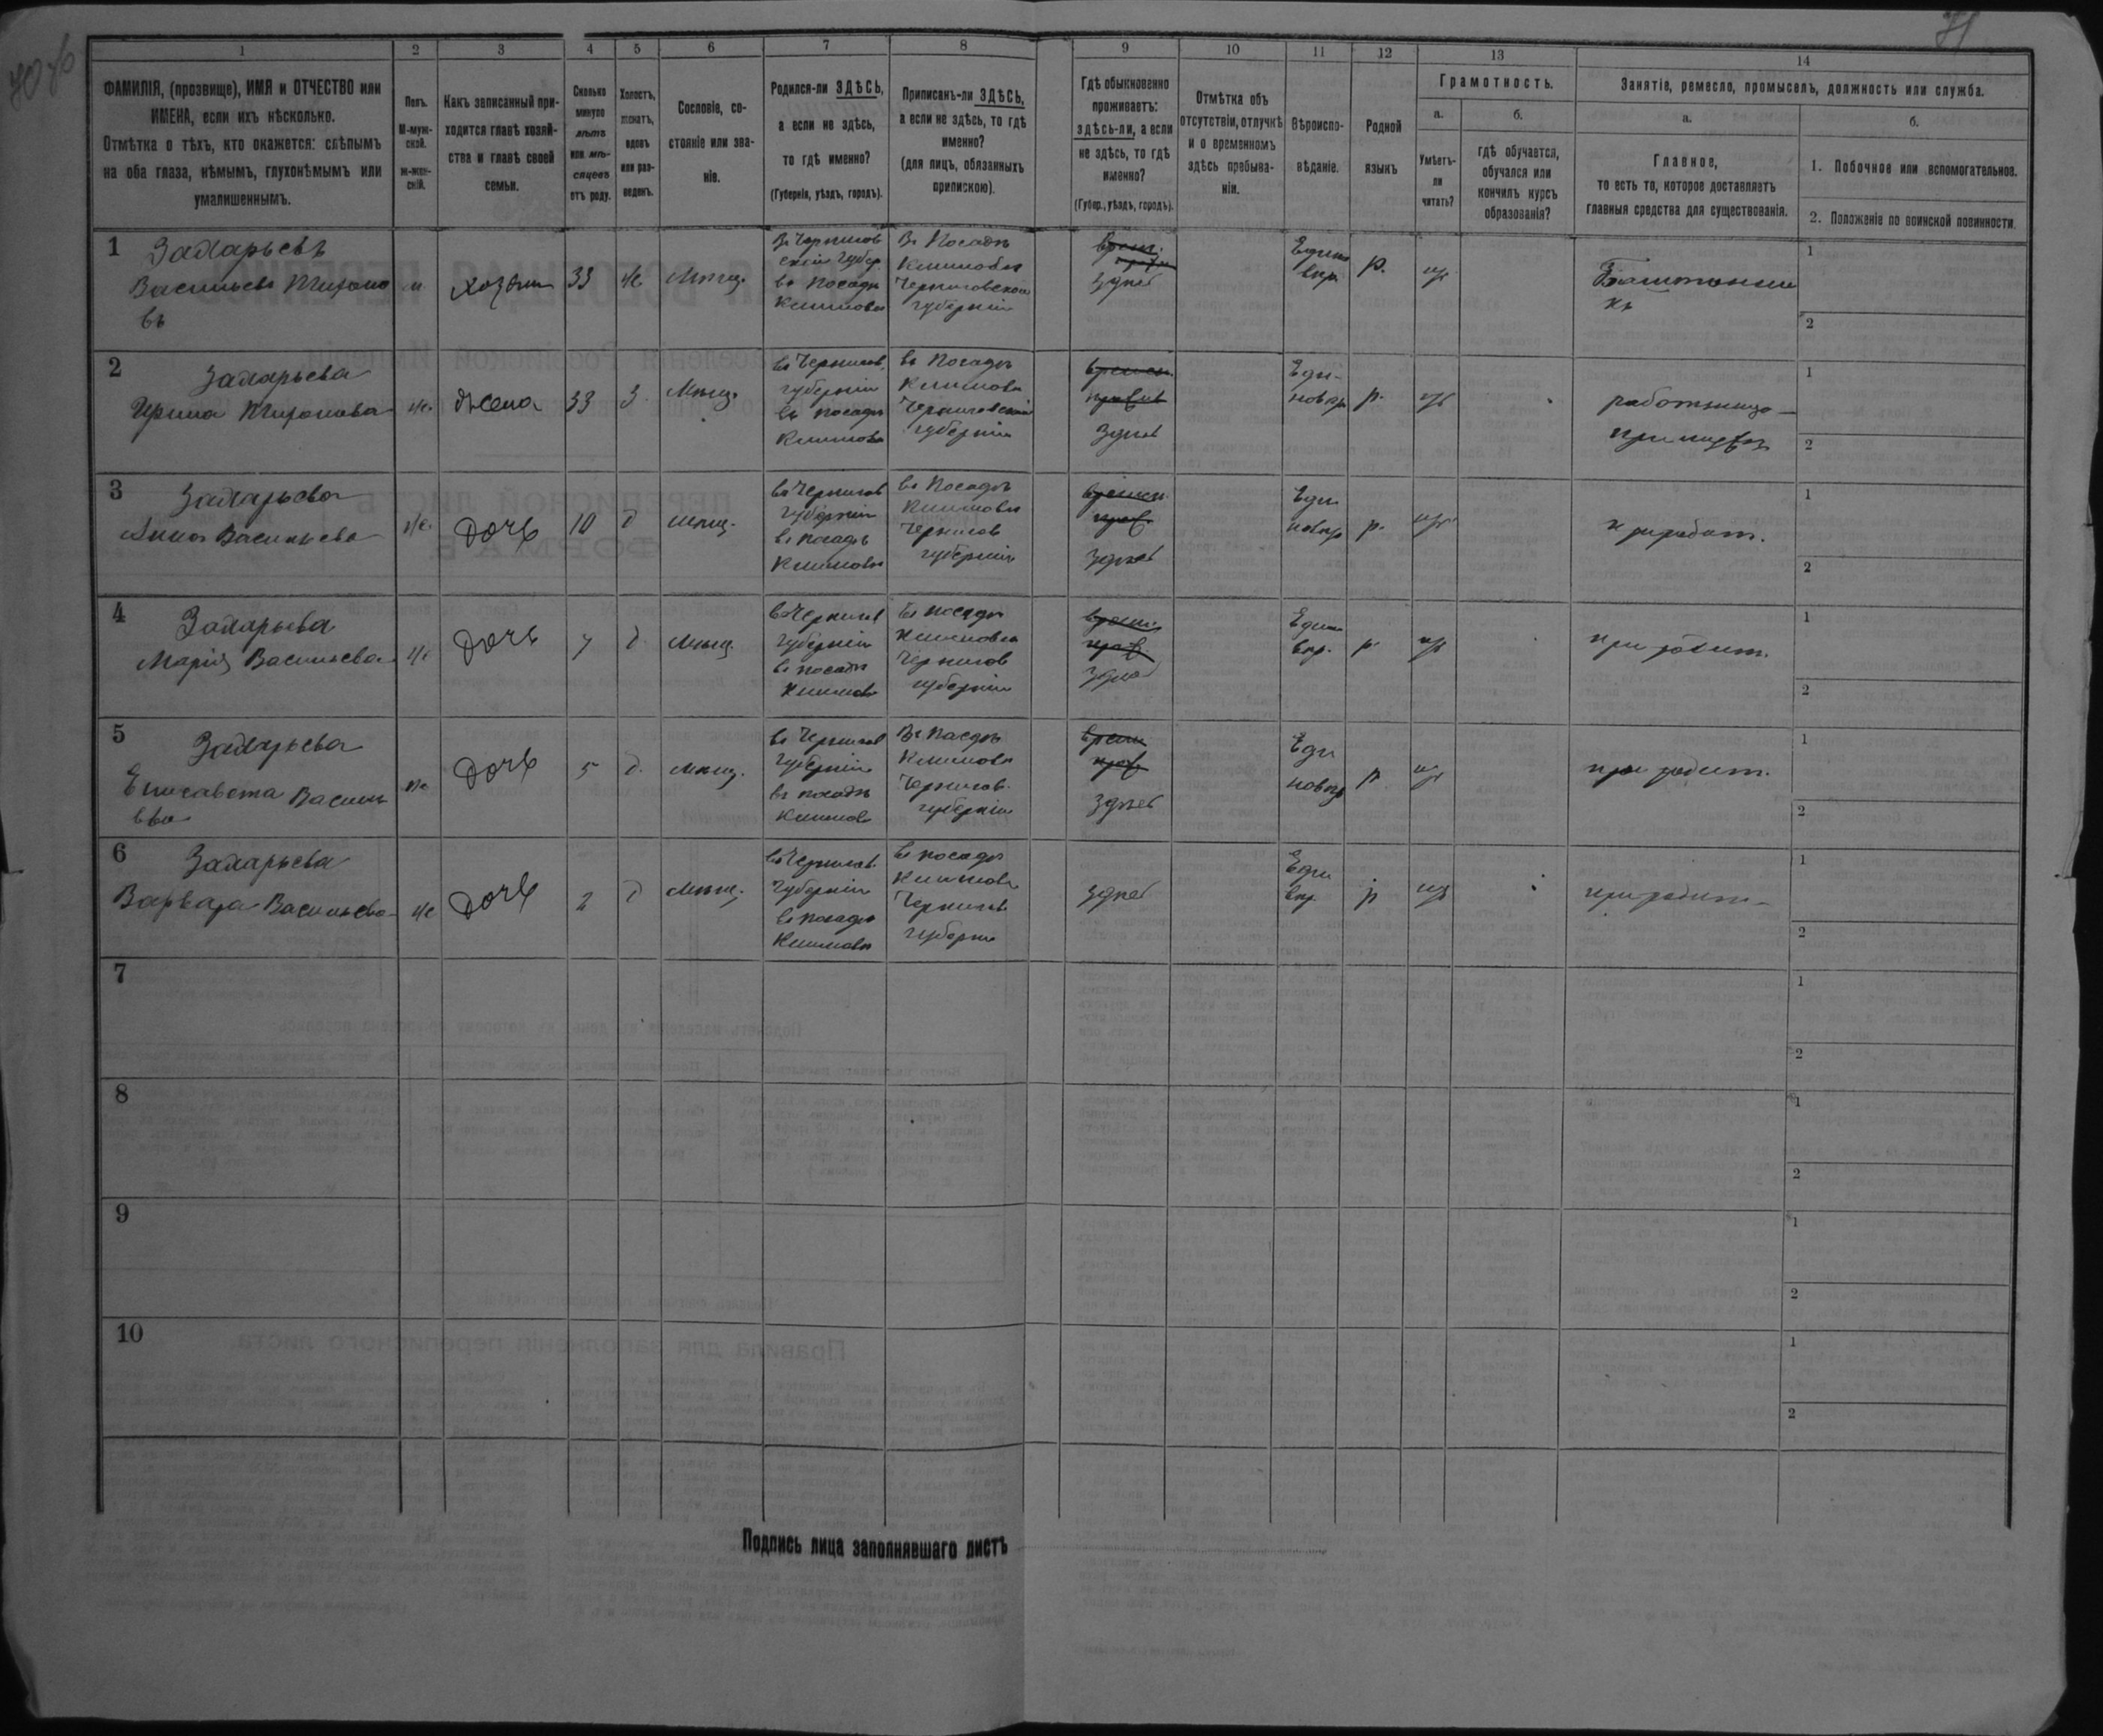 70 об
71
1
2
3
4
5
6
7
8
9
10
11
12
13
14
ФАМИЛІЯ, (прозвище), ИМЯ и ОТЧЕСТВО или
ИМЕНА, если ихъ нѣсколько.
Отмѣтка о тѣхъ, кто окажется: слѣпымъ
на оба глаза, нѣмымъ, глухонѣмымъ или
умалишеннымъ.
Полъ.
М-муж-
ской.
ж-жен-
скій.
Какъ записанный при-
ходится главѣ хозяй-
ства и главѣ своей
семьи.
Сколько
минуло
лѣтъ
или мѣ-
сяцевъ
отъ роду.
Холостъ,
женатъ,
вдовъ
или раз-
веденъ.
Сословіе, со-
стояніе или зва-
ніе.
Родился-ли ЗДѢСЬ,
а если не здѣсь,
то гдѣ именно?
(Губернія, уѣздъ, городъ).
Приписанъ-ли ЗДѢСЬ,
а если не здѣсь, то гдѣ
именно?
(для лицъ, обязанныхъ
припискою).
Гдѣ обыкновенно
проживаетъ:
здѣсь-ли, а если
не здѣсь, то гдѣ
именно?
(Губер., уѣздъ, городъ).
Отмѣтка объ
отсутствіи, отлучкѣ
и о временномъ
здѣсь пребыва-
ніи.
Вѣроиспо-
вѣданіе.
Родной
языкъ
Грамотность.
а.
Умѣетъ-
ли
читать?
б.
гдѣ обучается,
обучался или
кончилъ курсъ
образованія?
Занятіе, ремесло, промыселъ, должность или служба.
а.
Главное,
то есть то, которое доставляетъ
главныя средства для существованія.
б.
1. Побочное или вспомогательное.
2. Положеніе по воинской повинности.
1
Захарьевъ
Васильевъ
м
хозяин
33
ж
Мѣщ.
Въ Чернигов
ской губер.
въ Посадѣ
Климовѣ
Въ Посадѣ
Климовѣ
Черниговской
губерніи
здѣсь
Един
вѣр.
р.
1
2
2
Захарьева
Ирина
ж.
жена
33
З.
Мѣщ.
въ Чернигов.
губерніи
въ посадѣ
Климовѣ
въ Посадѣ
Климовѣ
Черниговской
губерніи
здѣсь
Еди-
новѣр
р.
работница
1
2
3
Захарьева
Анна Васильева
ж.
дочь
10
д
мѣщ.
въ Чернигов
губерніи
въ посадѣ
Климовѣ
въ Посадѣ
Климовѣ
Чернигов
губерніи
здѣсь
Еди
новѣр
р.
1
2
4
Захарьева
Марія Васильева
ж
дочь
7
д
Мѣщ.
въ Чернигов
губерніи
въ посадѣ
Климовѣ
въ посадѣ
Климовѣ
Чернигов
губерніи
здѣсь
Един
вѣр.
р.
при родит.
1
2
5
Захарьева
Елисавета Василь
ева
ж
дочь
5
д.
Мѣщ.
въ Чернигов
губерніи
въ посадѣ
Климовѣ
Въ Посадѣ
Климовѣ
Чернигов.
губерніи
здѣсь
Еди
новѣр
р.
при родит.
1
2
6
Захарьева
Варвара Васильева
ж
дочь
2
д
Мѣщ.
въ Чернигов.
губерніи
въ посадѣ
Климовѣ
въ посадѣ
Климовѣ
Чернигов
губерни
здѣсь
Еди
вѣр.
р
при родит.
1
2
7
1
2
8
1
2
9
1
2
10
1
2
Подпись лица заполнявшаго листъ